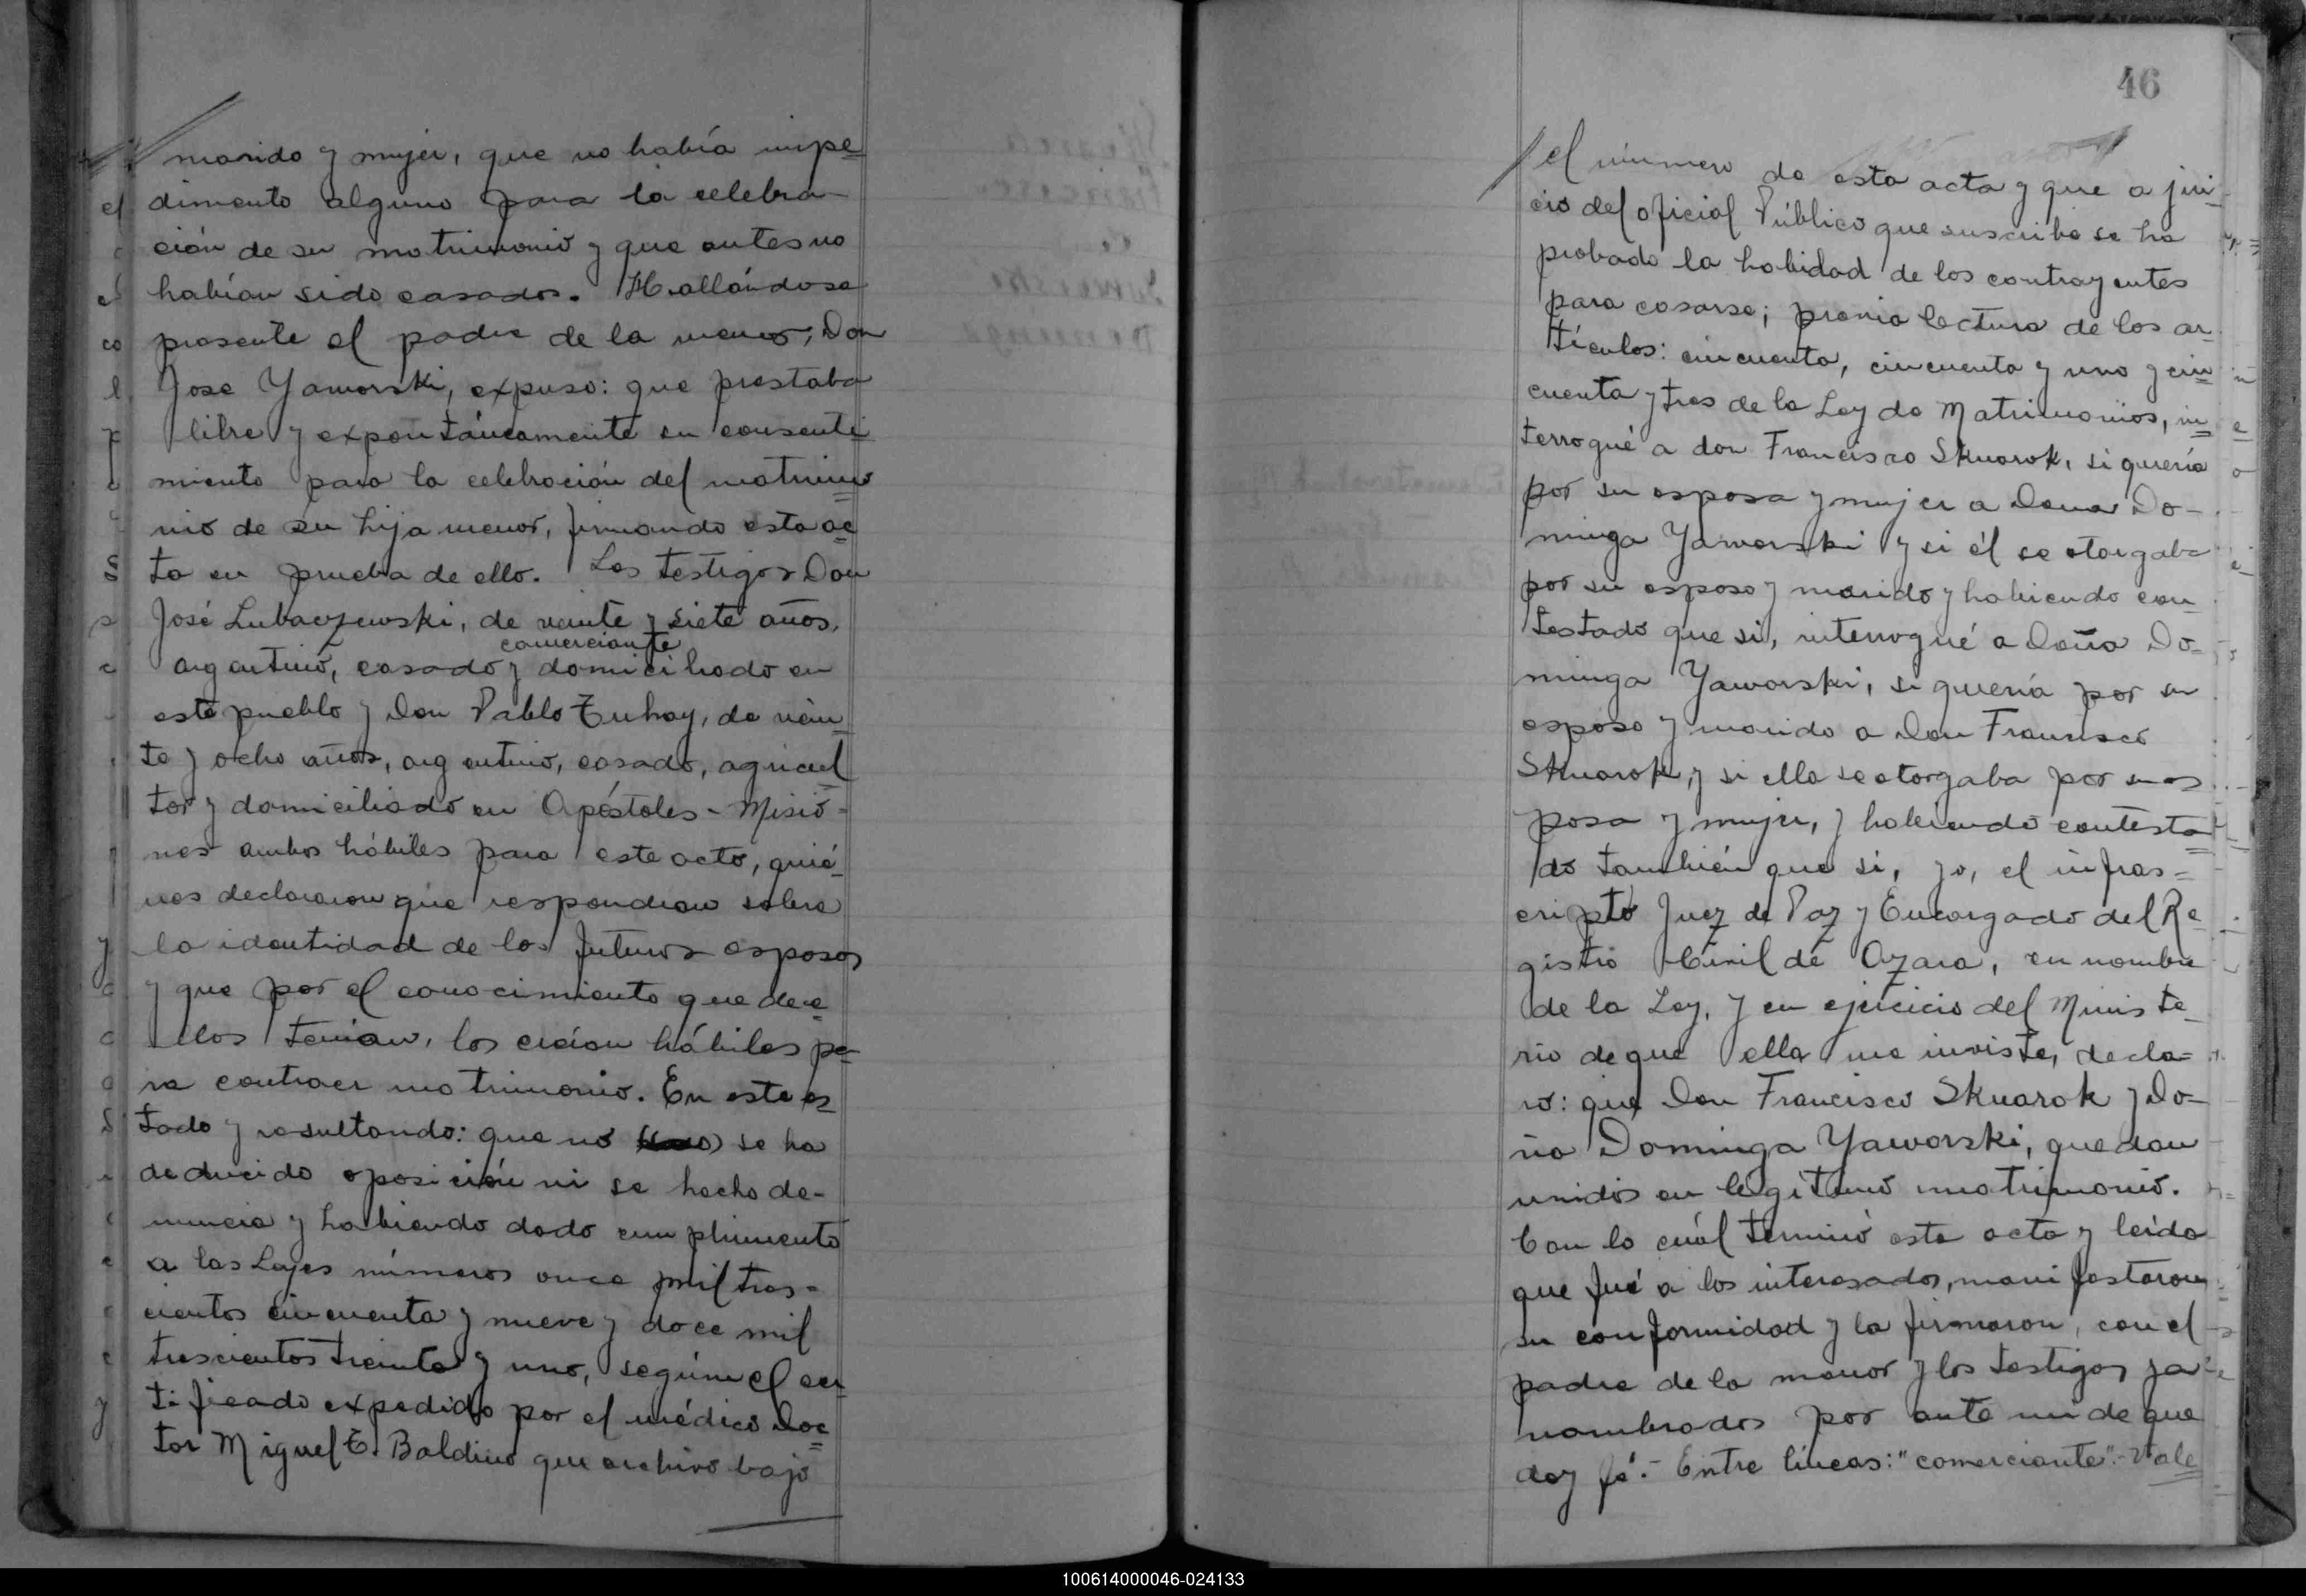 marido y mujer, que no había impe=
dimento alguno para la celebra-
ción de su matrimonio y que antes no
habían sido casados. Hallándose
presente el padre de la menor, Don
Jose Yaworski, expuso: que prestaba
libre y expontáneamente su consenti=
miento para la celebración del matrimo=
nio de su hija menor, firmando esta ac=
ta en prueba de ello. Los testigos Don
José Lubaczewski, de veinte y siete años,
comerciante
argentino, casado y domiciliado en
este pueblo y Don Pablo Tuhay, de vein=
te y ocho años, argentino, casado, agricul=
tor y domiciliado en Apóstoles - Misio=
nes ambos hábiles para este acto, quié=
nes declararon que respondian sobre
la identidad de los futuros esposos
y que por el conocimiento que de e=
llos tenian, los creían hábiles pa=
ra contraer matrimonio. En este es=
tado y resultando: que no se ha
deducido oposición ni se hecho de-
nuncia y habiendo dado cumplimento
a las Leyes números once mil tres=
cientos cincuenta y nueve y doce mil
trescientos treinta y uno, según el cer=
tificado expedido por el médico Doc=
tor Miguel C. Baldino que archivo bajo
46
el número de esta acta y que a jui-
cio del oficial Público que suscribe se ha
probado la habidad de los contrayentes
para casarse; previa lectura de los ar-
tículos: cincuenta, cincuenta y uno y cin=
cuenta y tres de la Ley de Matrimonios, in=
terrogué a don Francisco Skwarok, si quería
por su esposa y mujer a Dona Do-
minga Yaworski y si él se otorgaba
por su esposo y marido y habiendo con-
testado que si, interrogué a Doña Do=
minga Yaworski, si quería por su
esposo y marido a Don Francisco
Skwarok, y si ella se otorgaba por su es
posa y mujer, y habiendo contesta=
do también que si, yo, el infras=
cripto Juez de Paz y Encargado del Re=
gistro Civil de Azara, en nombre
de la Ley, y en ejercicio del Ministe-
rio de que ella me inviste, decla=
ro: que Don Francisco Skwarok y Do-
ña Dominga Yaworski, quedan
unidos en legitimo matrimonio.
Con lo cuál terminó este acta y leída
que fué a los interesados, manifestaron
su conformidad y la firmaron, con el
padre de la menor y los testigos ya
nombrados por ante mi de que
doy fé.- Entre líneas: "comerciante".- Vale
100614000046-024133